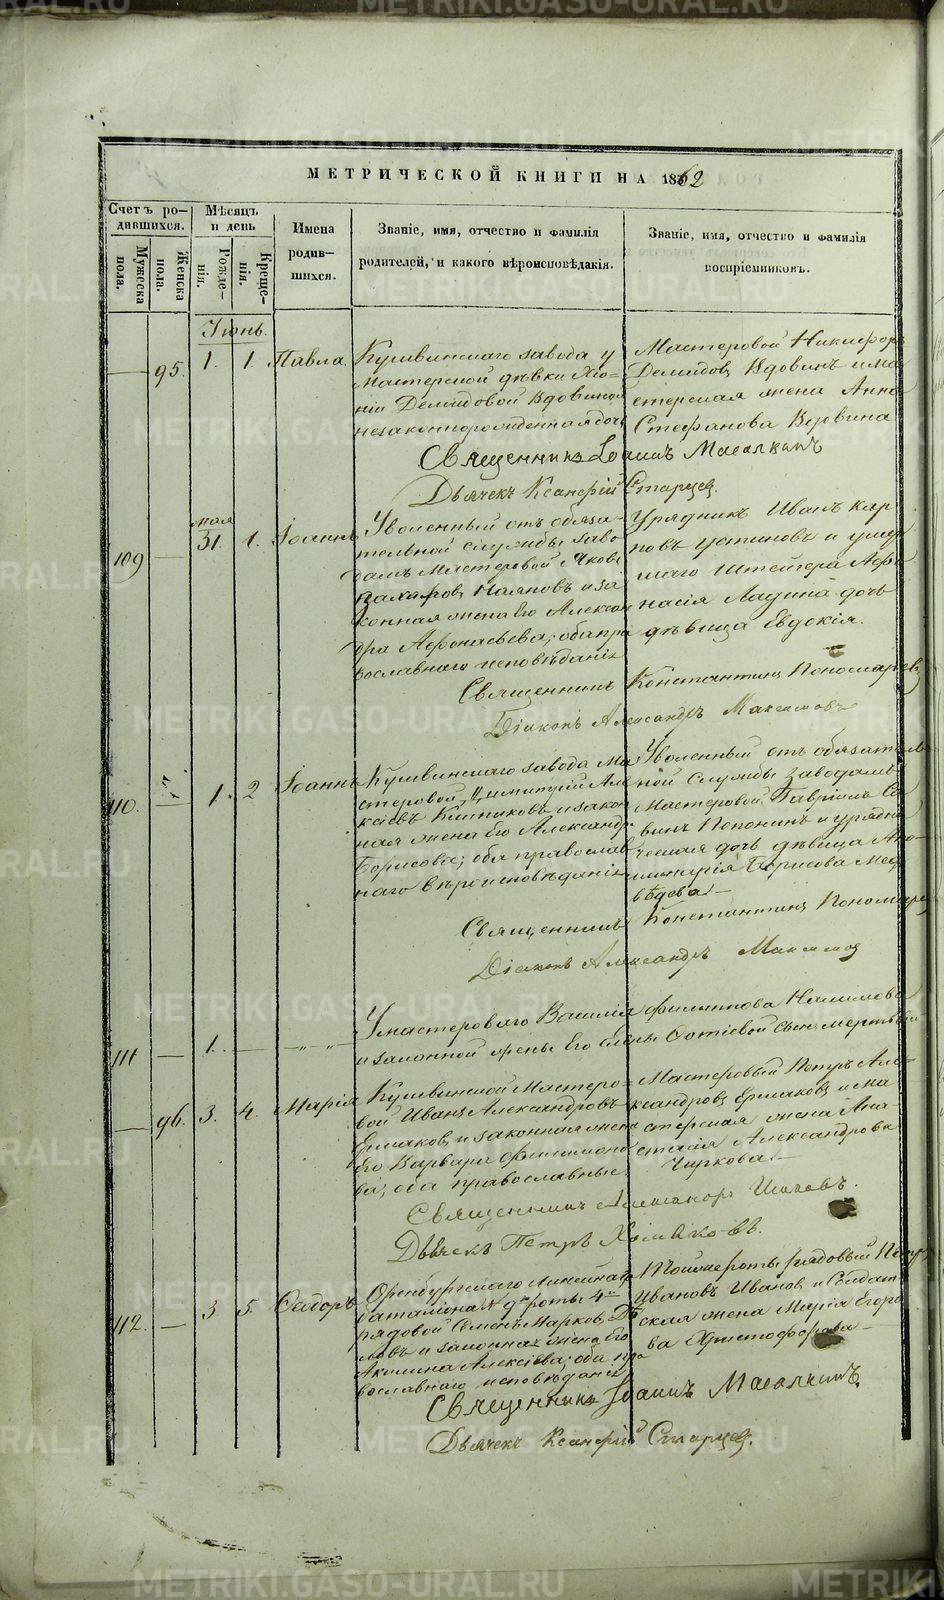 МЕТРИЧЕСКОЙ КНИГИ НА 1862
Счетъ ро-
дившихся.
Мужеска
пола.
Женска
пола.
Мѣсяцъ
и день
Рожде-
нія.
Креще-
нія.
Имена
родив-
шихся.
Званіе, имя, отчество и фамилія
родителей, и какого вѣроисповѣданія.
Званіе, имя, отчество и фамилія
воспріемниковъ.
Іюнь.
— 95. 1. 1. Павла
Кушвинскаго завода у
мастерской дѣвки
Демидовой Вдовиной
незаконнорожденная дочь
Мастеровой Никифоръ
Демидовъ Вдовинъ и ма-
стерская жена Анна
Стефанова Вдовина
Священникъ Іоаннъ Масалкинъ
Дьячекъ Ксанфій Старцев.
109 — мая 31. 1. Іоаннъ
Уволенный отъ обяза-
тельной службы заво-
дамъ Мастеровой Яковъ
Захаровъ и за-
конная жена его Алексан
дра Афонасьева, оба пра
вославнаго исповѣданія
Урядникъ Иванъ Кар
повъ Устиновъ и умер
шаго Штейгера Афо
насія Ладина дочь
дѣвица Евдокія.
Священникъ Константинъ Пономаревъ
Діаконъ Александръ Максимовъ
110. — 1. 2 Іоаннъ
Кушвинскаго завода Ма
стеровой Димитрій Але
ксѣевъ и закон
ная жена его Александра
Борисова; оба православ
наго вѣроисповѣданія
Уволенный отъ обязатель
ной службы заводамъ
Мастеровой Гавріилъ Са
винъ Попонинъ и урядни
ческая дочь дѣвица
Борисова Мед
вѣдева —
Священникъ Константинъ Пономарев
Діаконъ Александръ Максимов
111 — 1. — —
У мастероваго Василія Филиппова Налимова
и законной жены его Сотіевой сынъ мертвый
— 96. 3. 4. Марія
Кушвинской Мастеро-
вой Иванъ Александровъ
Ермаков, и законная жена
его Варвара Филимоно
ва; оба православные
Мастеровый Петръ Але-
ксандров Ермаков и ма
стерская жена Ана
стасія Александрова
Чиркова. —
Священникъ Александръ
Дьячекъ Петръ Хомяковъ.
112. — 3 5. Ѳеодоръ
Оренбургскаго линейнаго
баталіона № роты 4й
рядовой Семенъ Марков
и законная жена его
Акилина Алексіева; оба пра
вославнаго исповѣданія
Той же роты рядовый Петръ
Ивановъ Иванов и Солдат
ская жена Марія Егоро
ва Христофорова —
Священникъ Іоаннъ Масалкинъ.
Дьячекъ Ксанфій Старцев.
METRIKI.GASO-URAL.RU